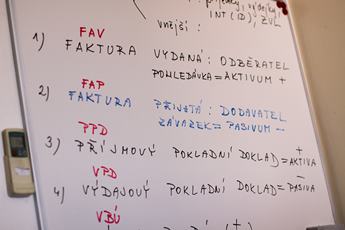 INT (ID), ZVL
VNĚJŠÍ :
FAV
1) FAKTURA VYDANÁ : ODBĚRATEL
POHLEDÁVKA = AKTIVUM +
FAP
2) FAKTURA PŘIJATÁ : DODAVATEL
ZÁVAZEK = PASIVUM –
PPD
3) PŘÍJMOVÝ POKLADNÍ DOKLAD = AKTIVA +
VPD
4) VÝDAJOVÝ POKLADNÍ DOKLAD = PASIVA –
VBÚ
(+)